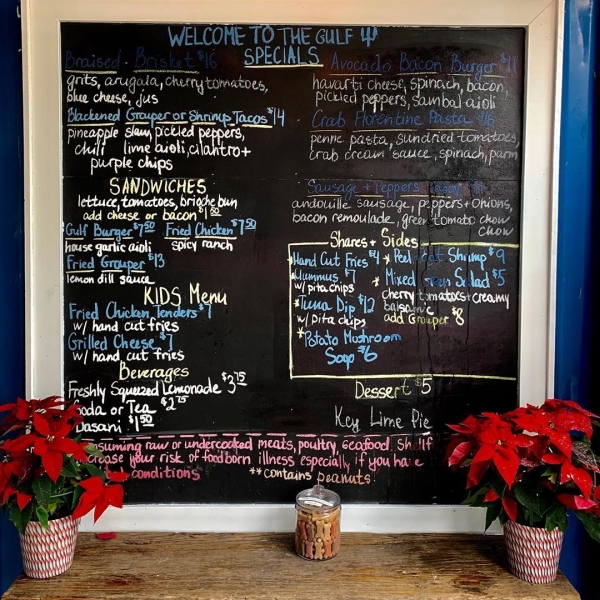 WELCOME TO THE GULF
SPECIALS
Braised Brisket $16
grits, arugala, cherry tomatoes,
blue cheese, jus
Blackened Grouper or Shrimp Tacos $14
pineapple slaw, pickled peppers,
chili lime aioli, cilantro +
purple chips
Avocado Bacon Burger
havarti cheese, spinach, bacon,
pickled peppers, sambal aioli
Crab Florentine Pasta
penne pasta, sundried tomatoes
crab cream sauce, spinach, parm
Sausage + Peppers
andouille sausage, peppers + onions,
bacon remoulade, green tomato chow
chow
SANDWICHES
lettuce, tomatoes, brioche bun
add cheese or bacon $1.50
Gulf Burger $7.50 Fried Chicken $7.50
house garlic aioli spicy ranch
Fried Grouper $13
lemon dill sauce
KIDS Menu
Fried Chicken Tenders $7
w/ hand cut fries
Grilled Cheese $7
w/ hand cut fries
Beverages
Freshly Squeezed Lemonade $3.75
Soda or Tea $2.75
Dasani $1.50
Shares + Sides
*Hand Cut Fries $4
*Hummus $7
w/ pita chips
*Tuna Dip $12
w/ pita chips
*Potato Mushroom
Soup $6
*Peel Eat Shrimp $9
*Mixed Green Salad $5
cherry tomatoes + creamy
balsamic
add Grouper $8
Dessert $5
Key Lime Pie
consuming raw or undercooked meats, poultry, seafood,
increase your risk of foodborn illness especially if you have
conditions
**contains peanuts